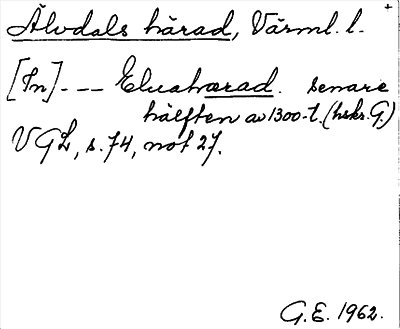 Älvdals härad, Värml. l.
[In] --- Eluahærad. senare
hälften av 1300-t. (hskr. G.)
VGL, s. 74, not 27.
G.E. 1962.